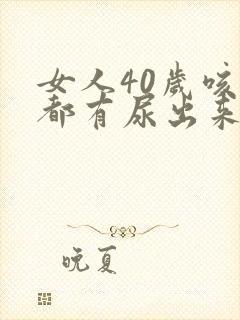 女人40歲咳
都有尿出来
晚夏